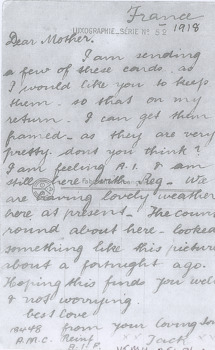 France
LUXOGRAPHIE, SÉRIE Nº 52
1918
Dear Mother.
I am sending
a few of these cards. as
I would like you to keep
them. so that on my
return. I can get them
framed - as they are very
pretty. dont you think?
I am feeling A.1. & am
still here with Reg - We
are having lovely weather
here at present - The coun
round about here - looked
something like this picture
about a fortnight ago.
Hoping this finds you well
& not worrying.
best love
from your loving son
18448
A.M.C. Reinf
Jack